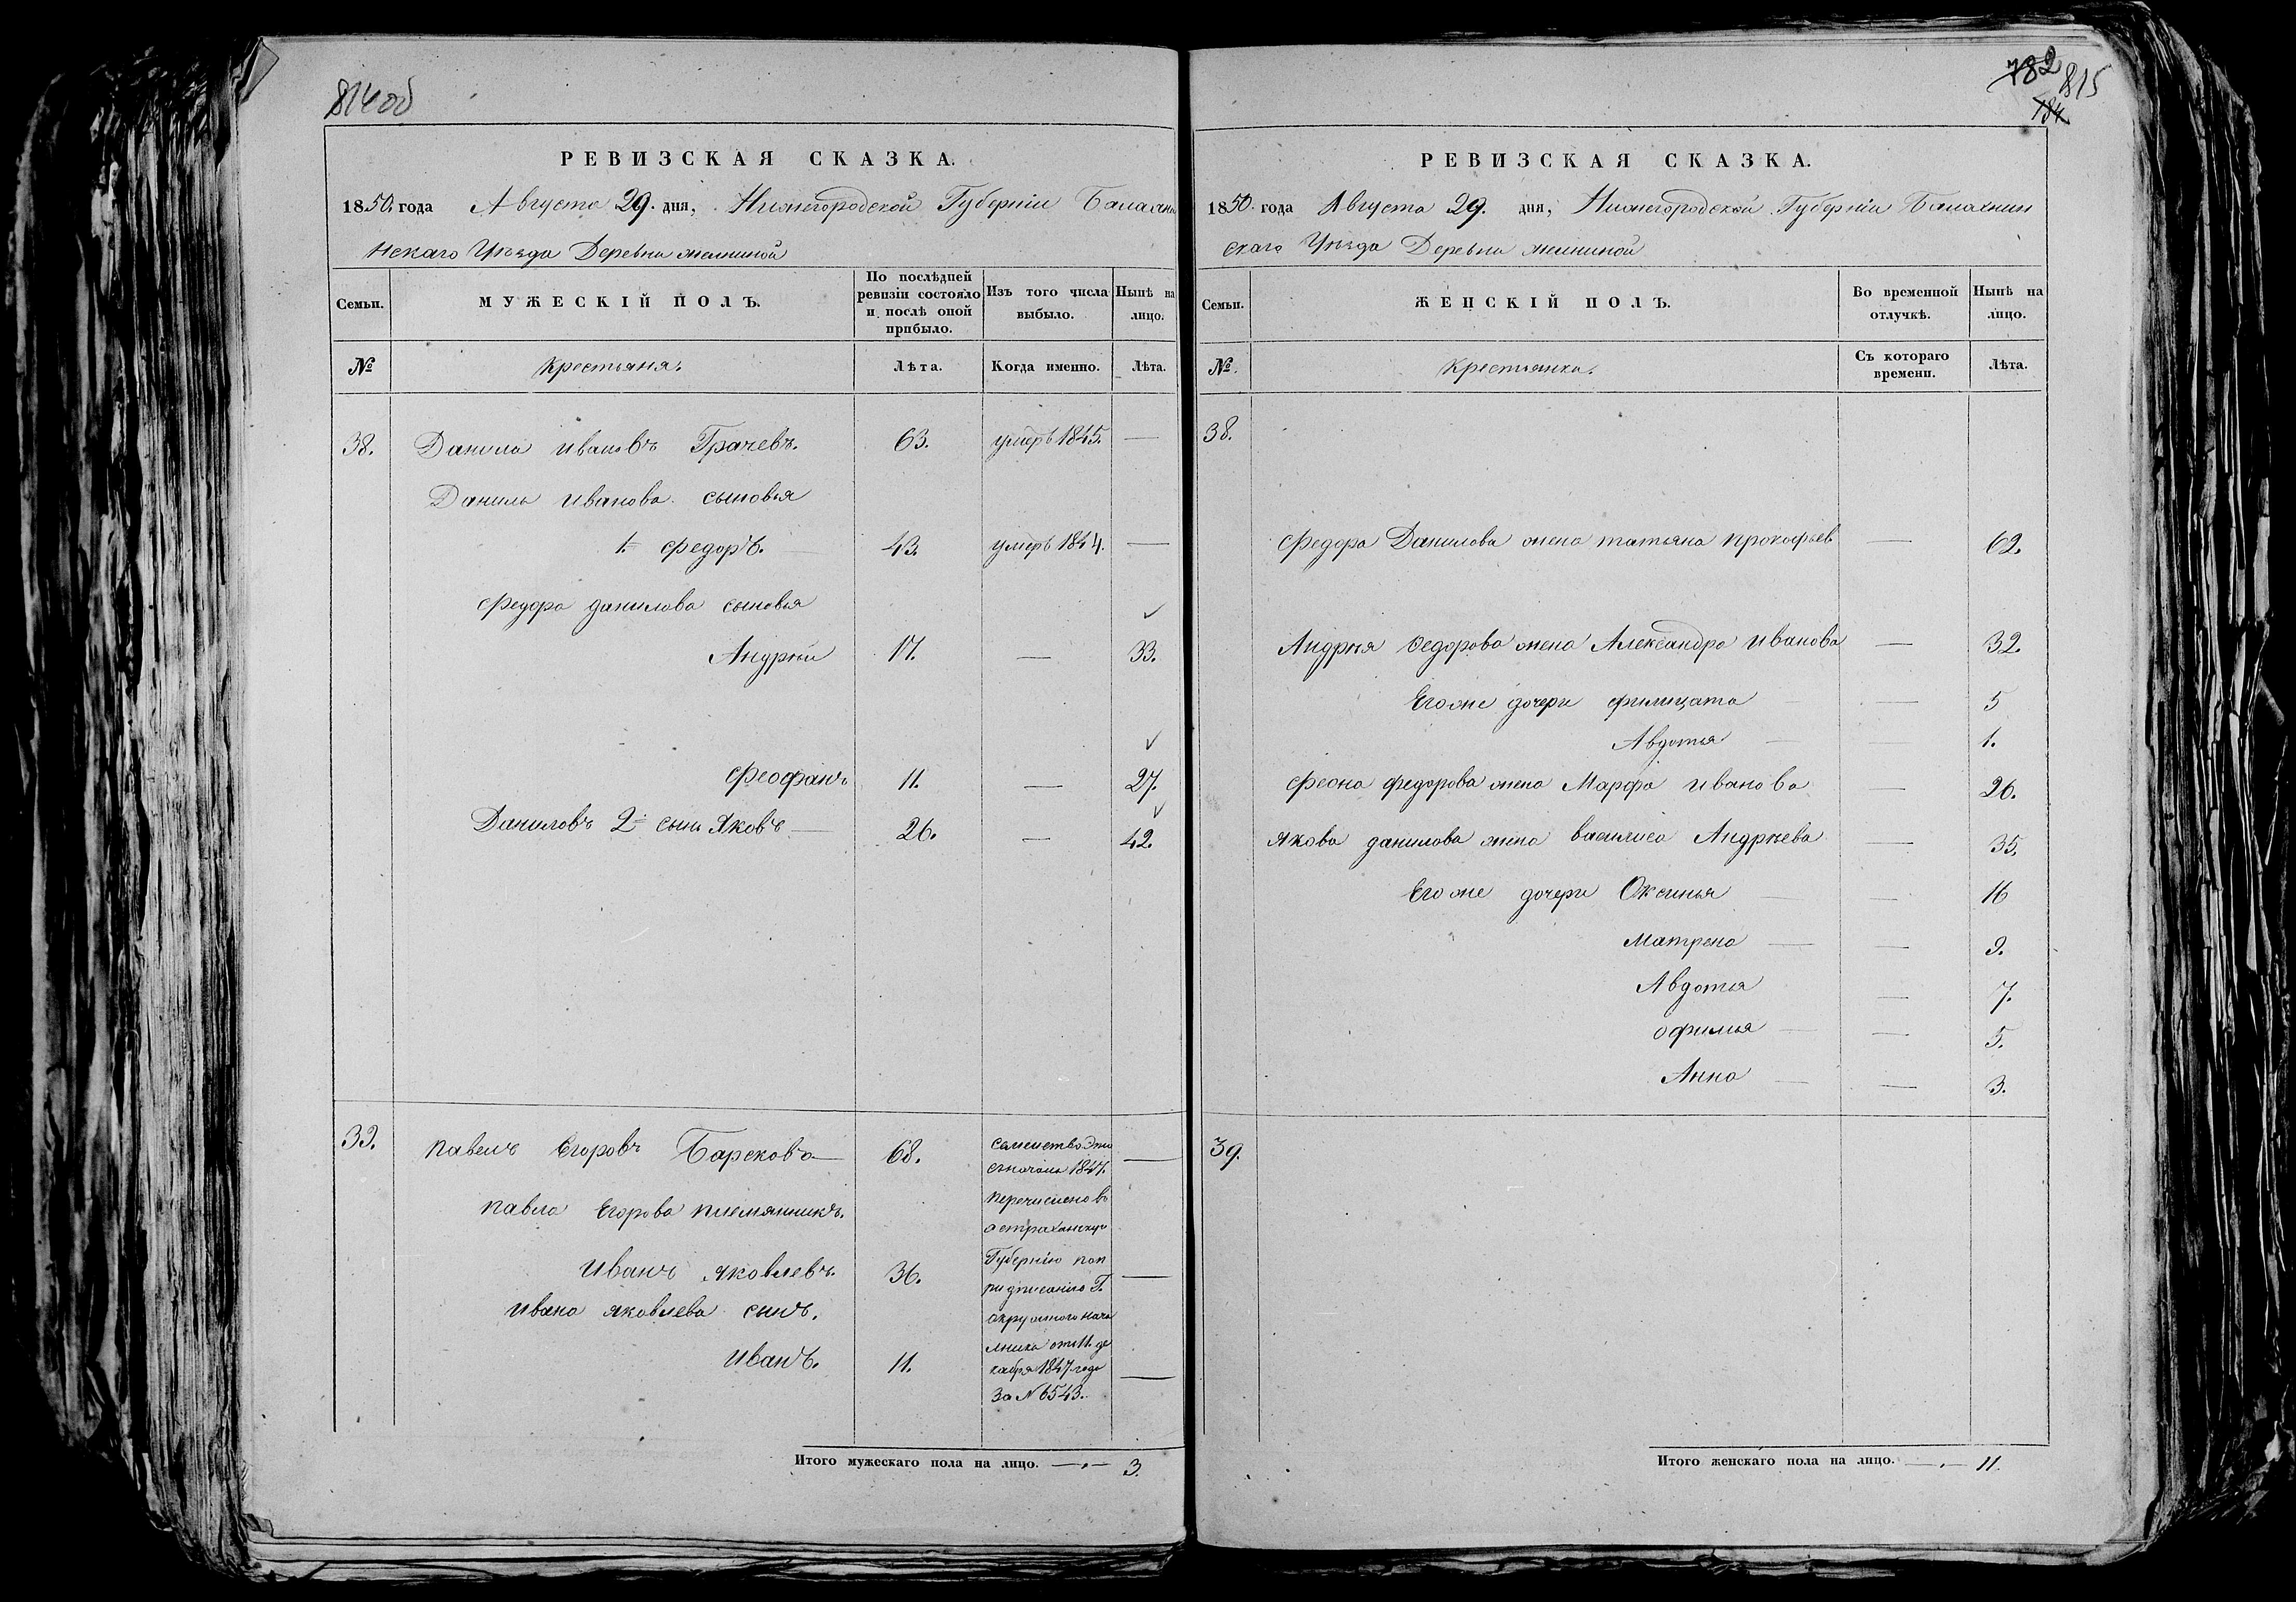 814 об
РЕВИЗСКАЯ СКАЗКА.
1850. года Августа 29. дня, Нижегородской Губерніи Балахни
нскаго Уѣзда Деревни
Семьи.
МУЖЕСКІЙ ПОЛЪ.
По послѣдней ревизіи состояло и послѣ оной прибыло.
Изъ того числа выбыло.
Нынѣ на лицо.
№
Крестьяня.
Лѣта.
Когда именно.
Лѣта.
38. Данила Ивановъ Грачевъ. 63. умеръ 1845. —
Данилы Иванова сыновья
1. Федоръ. 43. умеръ 1844. —
Федора данилова сыновья
Андрѣй 17. — 33.
Феофанъ 11. — 27.
Даниловъ 2й сынъ Яковъ — 26. — 42.
39. Павелъ Егоровъ Барсковъ — 68. —
Павла Егорова племянникъ.
Иванъ яковлевъ. 36. —
Ивана яковлева сынъ.
Иванъ. 11. —
семейство Это
сначала 1847.
перечислено въ
астраханскую
Губернію поп
ридписанію Г.
окружного нача
лника от 11. де
кабря 1847 года
За № 6543.
Итого мужескаго пола на лицо. — 3.
782
815
184
РЕВИЗСКАЯ СКАЗКА.
1850. года Августа 29. дня, Нижегородской Губерніи Балахнин
скаго Уѣзда Деревни
Семьи.
ЖЕНСКІЙ ПОЛЪ.
Во временной отлучкѣ.
Нынѣ на лицо.
№.
Крестьянка.
Съ котораго времени.
Лѣта.
38.
Федора Данилова жена татьяна прокофьев — 62.
Андрѣя Федорова жена Александра Иванова — 32.
Егоже дочери филицата — 5
Авдотья — 1.
Феона федорова жена Марфа Иванова — 26.
Якова данилова жена василиса Андрѣева — 35.
Егоже дочери Оксинья — 16
Матрена — 9.
Авдотья — 7.
офимья — 5.
Анна — 3.
39.
Итого женскаго пола на лицо. — 11.